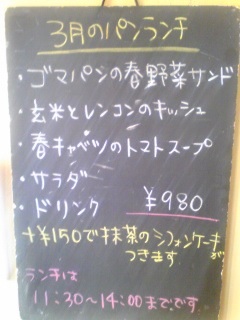 3月のパンランチ
・ゴマパンの春野菜サンド
・玄米とレンコンのキッシュ
・春キャベツのトマトスープ
・サラダ
・ドリンク ¥980
+¥150で抹茶のシフォンケーキが
つきます
ランチは
11:30〜14:00までです。